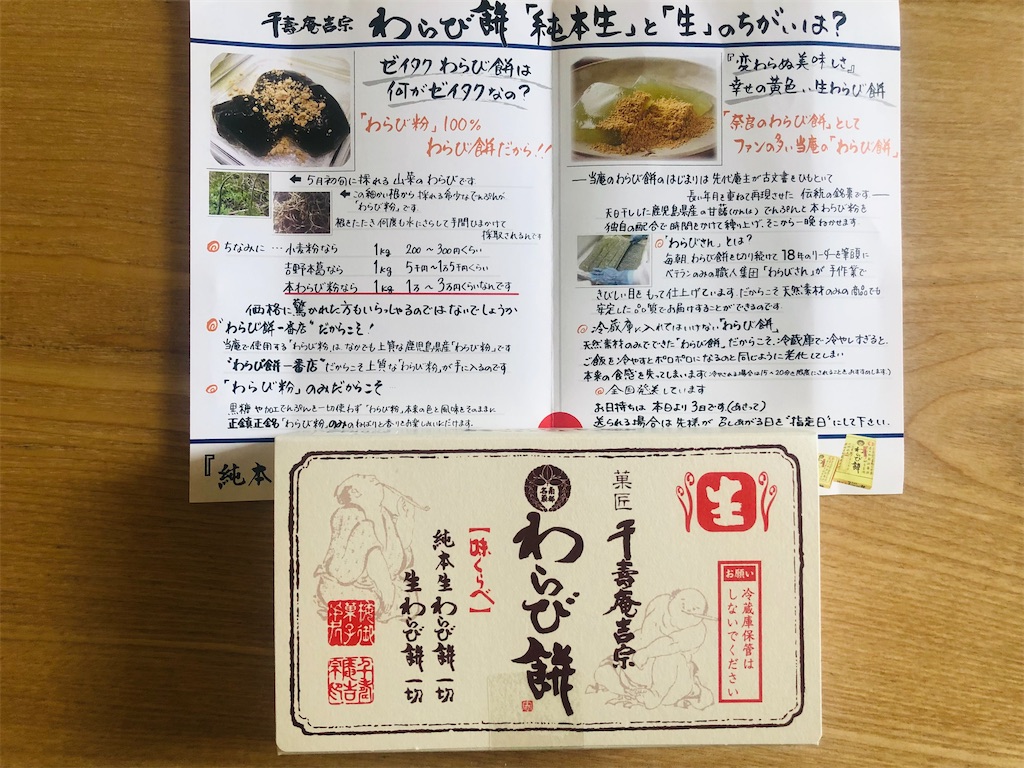 千壽庵吉宗 わらび餅「純本生」と「生」のちがいは?
ゼイタクわらび餅は
何がゼイタクなの?
「わらび粉」100%
わらび餅だから!!
← 5月初旬に採れる山菜のわらびです
← この細かい根から採れる希少なでんぷんが
「わらび粉」です
根をたたき何度も水にさらして手間ひまかけて
採取されるんです
ちなみに…小麦粉なら 1kg 200〜300円くらい
吉野本葛なら 1kg 5千〜1万5千円くらい
本わらび粉なら 1kg 1万〜3万円くらいなんです
価格に驚かれた方もいらっしゃるのではないでしょうか
"わらび餅一番店"だからこそ!
当庵で使用する「わらび粉」は、なかでも上質な鹿児島県産「わらび粉」です
"わらび餅一番店"だからこそ上質な「わらび粉」が手に入るのです
「わらび粉」のみだからこそ
黒糖や加工でんぷんを一切使わず「わらび粉」本来の色と風味をそのままに
正真正銘「わらび粉」のみのねばりと香りをお楽しみいただけます。
『純本
『変わらぬ美味しさ』
幸せの黄色い生わらび餅
「奈良のわらび餅」として
ファンの多い当庵の「わらび餅」
―当庵のわらび餅のはじまりは先代庵主が古文書をひもといて
長い年月を重ねて再現させた 伝統の銘菓です―
天日干しした鹿児島県産の甘藷(かんしょ)でんぷんと本わらび粉を
独自の配合で時間をかけて練り上げ、そこから一晩ねかせます
「わらびさん」とは?
毎朝、わらび餅を切り続けて18年のリーダーを筆頭に
ベテランのみの職人集団「わらびさん」が手作業で
きびしい目をもって仕上げています。だからこそ天然素材のみの商品でも
安定した品質でお届けすることができるのです
冷蔵庫に入れてはいけない「わらび餅」
天然素材のみでできた「わらび餅」だからこそ、冷蔵庫で冷やしすぎると、
ご飯を冷やすとボロボロになるのと同じように老化してしまい
本来の食感を失ってしまいます(冷やされる場合は15〜20分を限度にされることをおすすめします。)
全国発送しています
お日持ちは 本日より3日です。(あさって)
送られる場合は先様が 召しあがる日を"指定日"にして下さい。
わらび餅
生
菓匠 千壽庵吉宗
南都名産
わらび餅
【味くらべ】
純本生わらび餅 一切
生わらび餅 一切
お願い
冷蔵庫保管は
しないでください